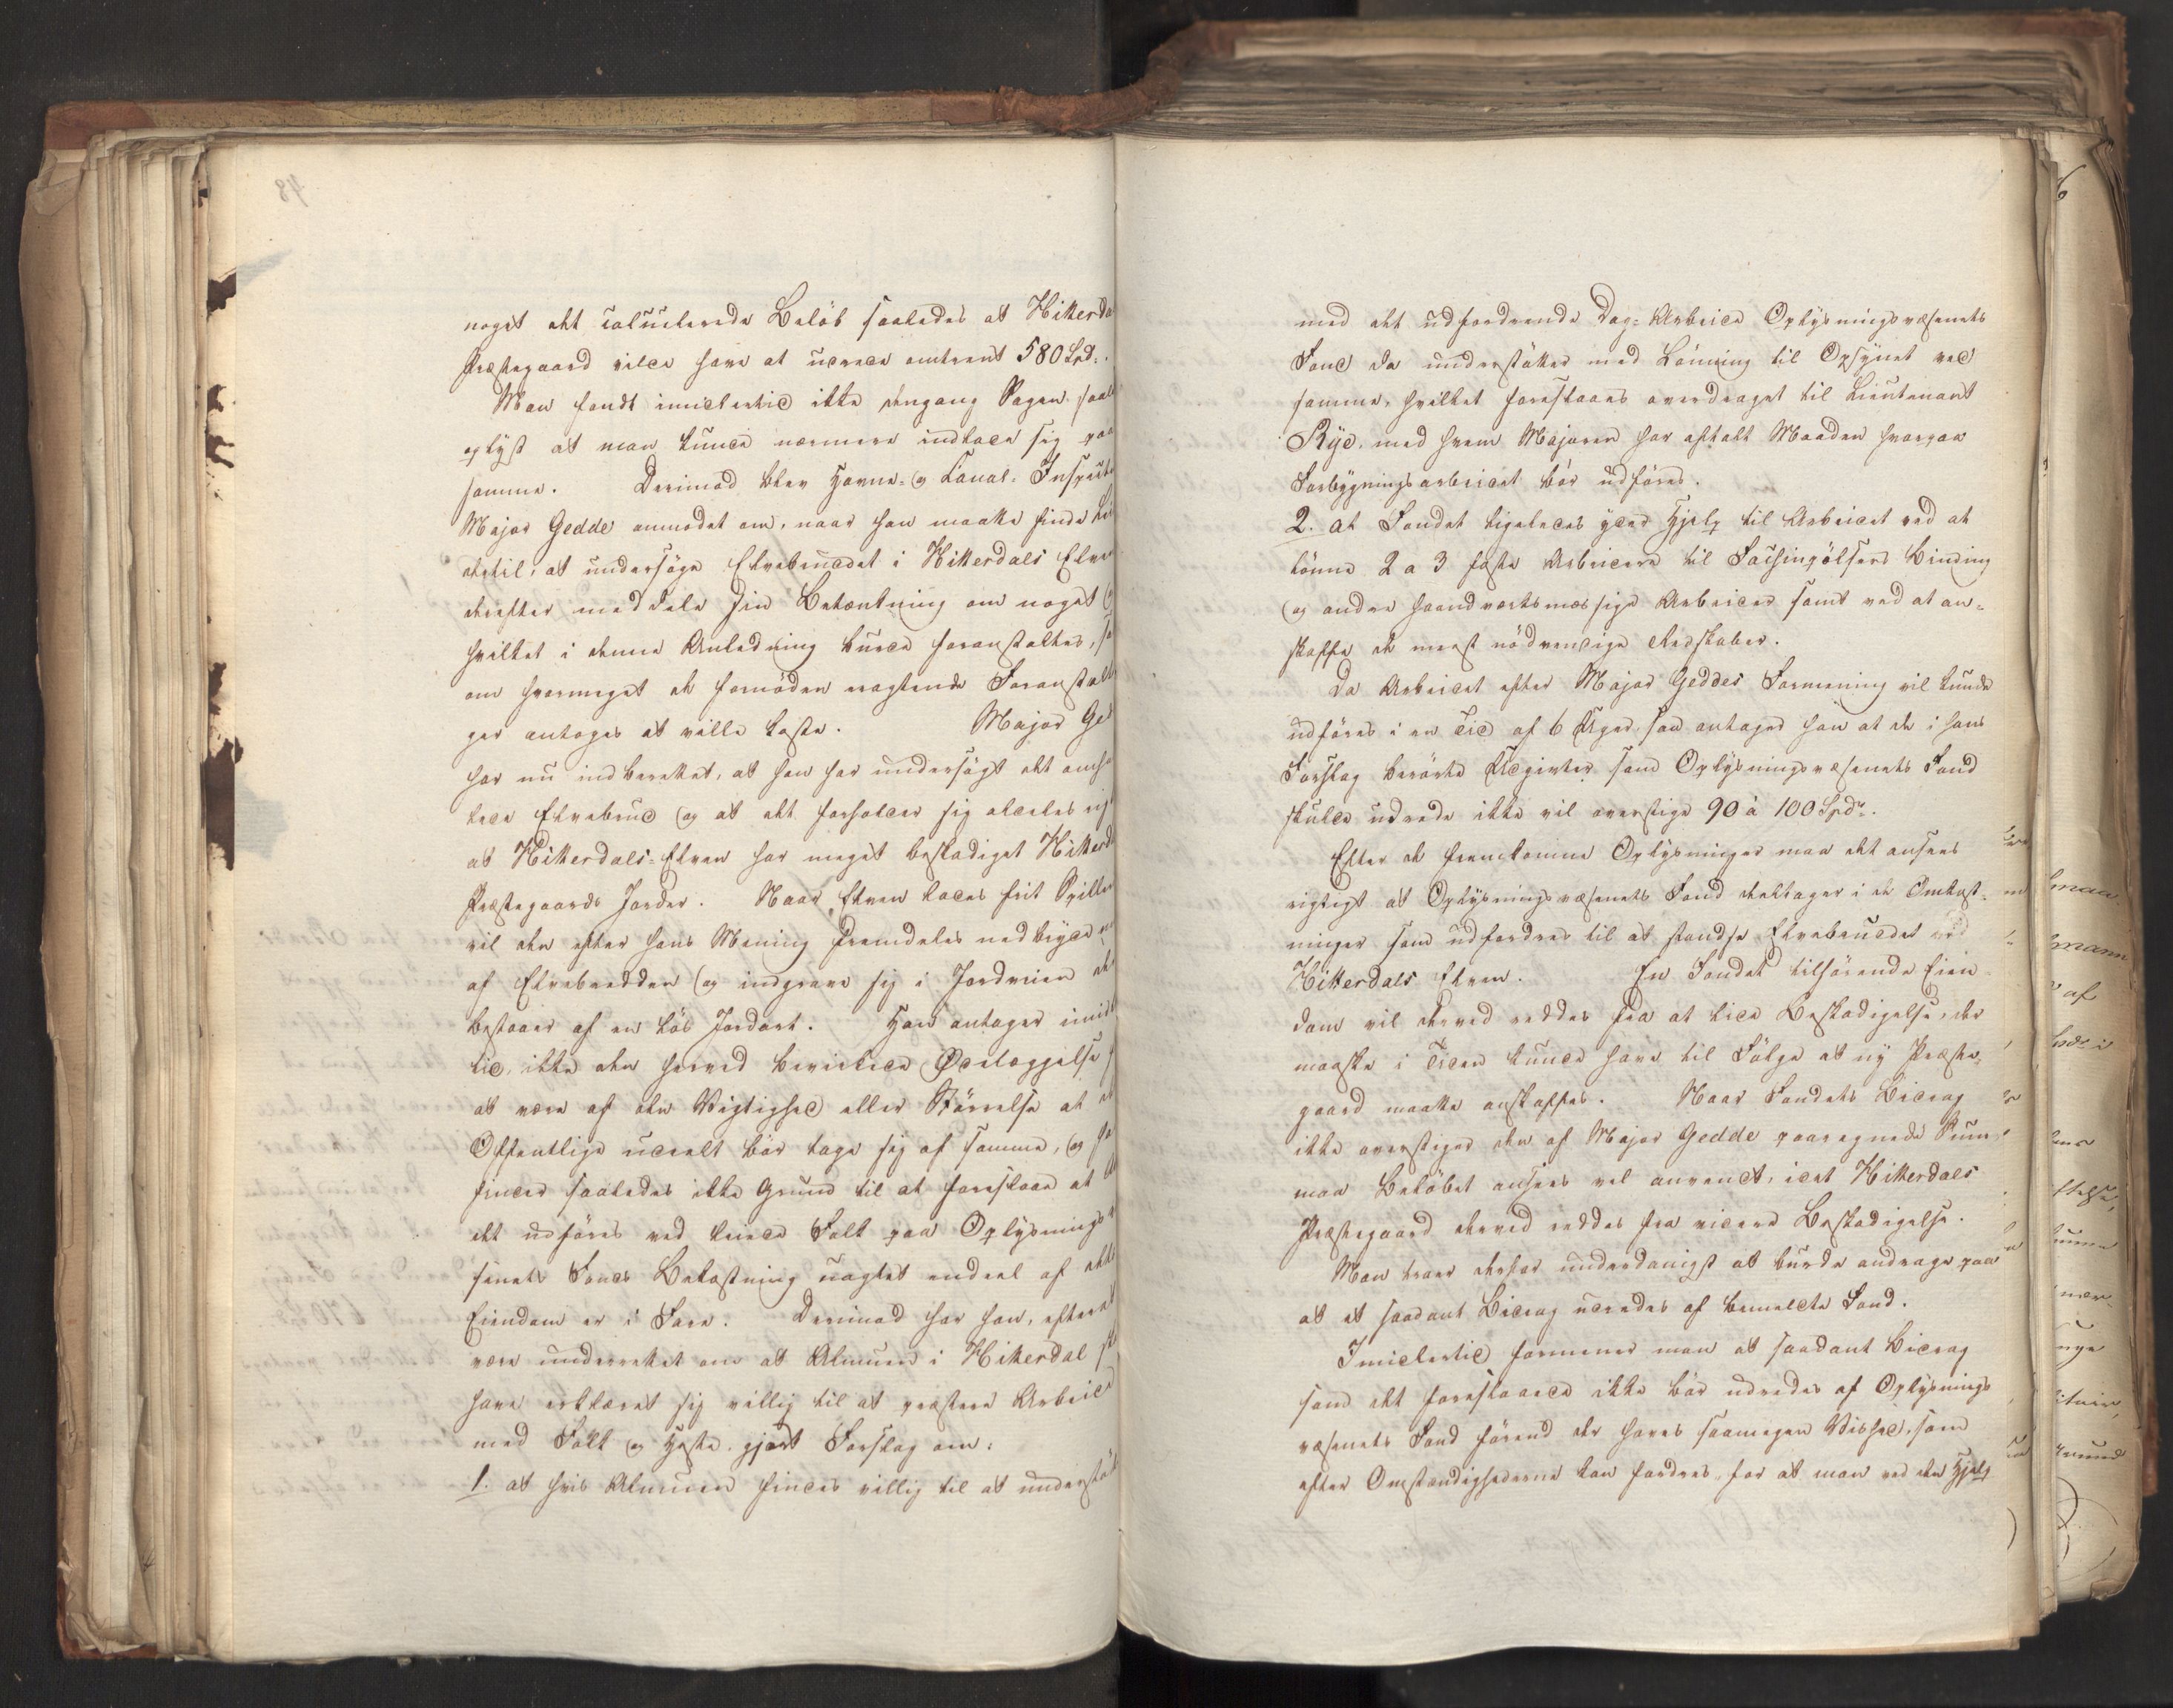 noget det calculerede Beløb saaledes at Hitterda
Præstegaard vilde have at udrede omtrent 580 Spd:.
Man fandt imidlertid ikke dengang Sagen saale
oplyst at man kunde nærmere indlade sig paa
samme. Derimod blev Havne- og Canal-Inspect
Major Gedde anmodet om, naar han maatte finde Lei
dertil, at undersøge Elvebruddet i Hitterdals Elve
derefter meddele sin Betænkning om noget
hvilket i denne Anledning burde foranstaltes, sa
om hvormeget de fornøden eragtende Foranstalt
ger antoges at ville koste. Major Ged
har nu indberettet, at han har undersøgt det omha
lede Elvebrud og at det forholder sig aldeles rig
at Hitterdals-Elven har meget beskadiget Hitterd
Præstegaards Jorder. Naar Elven lades frit Spillet
vil den efter hans Mening fremdeles nedbryde en
af Elvebredden og indgrave sig i Jordveien de
bestaaer af en løs Jordart. Han antager imid
tid, ikke den herved bevirkede Ødelæggelse f
at være af den Vigtighed eller Størrelse at et
Offentlige ucealt bør tage sig af samme, og ha
finder saaledes ikke Grund til at foreslaae at A
det udføres ved leiede Folk paa Oplysnings
senets Fonds Bekostning uagtet endeel af dette
Eiendom er i Fare. Derimod har han, efterat
være underrettet om at Almuen i Hitterdal sk
have erklæret sig villig til at præstere Arbeid
med Folk og Heste, gjort Forslag om:
1. at hvis Almuen findes villig til at understøt
med det udfordrende Dag-Arbeide Oplysningsvæsenets
Fond da understøtter med Lønning til Opsynet ved
samme, hvilket foreslaaes overdraget til Lieutenant
Rye, med hvem Majoren har aftalt Maaden hvorpaa
Forbygningsarbeidet bør udføres.
2. at Fondet ligeledes yder Hjelp til Arbeidet ved at
lønne 2 a 3 faste Arbeidere til Faskinpølsers Binding
og andre haandverksmæssige Arbeider samt ved at an-
skaffe de meest nødvendige Redskaber.
Da Arbeidet efter Major Geddes Formening vil kunde
udføres i en Tid af 6 Uger, saa antager han at de i hans
Forslag berørte Udgivter som Oplysningsvæsenets Fond
skulde udrede ikke vil overstige 90 à 100 Spdr.
Efter de fremkomne Oplysninger maa det ansees
rigtigt at Oplysningsvæsenets Fond deeltager i de Omkost-
ninger som udfordres til at standse Elvebruddet ved
Hitterdals Elven. En Fondet tilhørende Eien-
dom vil derved reddes fra at lide Beskadigelse, der
maaske i Tiden kunde have til Følge at ny Præste-
gaard maatte anskaffes. Naar Fondets Bidrag
ikke overstiger den af Major Gedde paaregnede Sum
maa Beløbet ansees vel anvendt, idet Hitterdals
Præstegaard derved reddes fra videre Beskadigelse.
Man troer derfor underdanigst at burde andrage paa
at et saadant Bidrag udredes af bemeldte Fond.
Imidlertid formener man at saadant Bidrag
som det foreslaaede ikke bør udredes af Oplysnings
væsenets Fond førend der haves saamegen Vished, som
efter Omstændighederne kan fordres, for at man ved den Hjelp